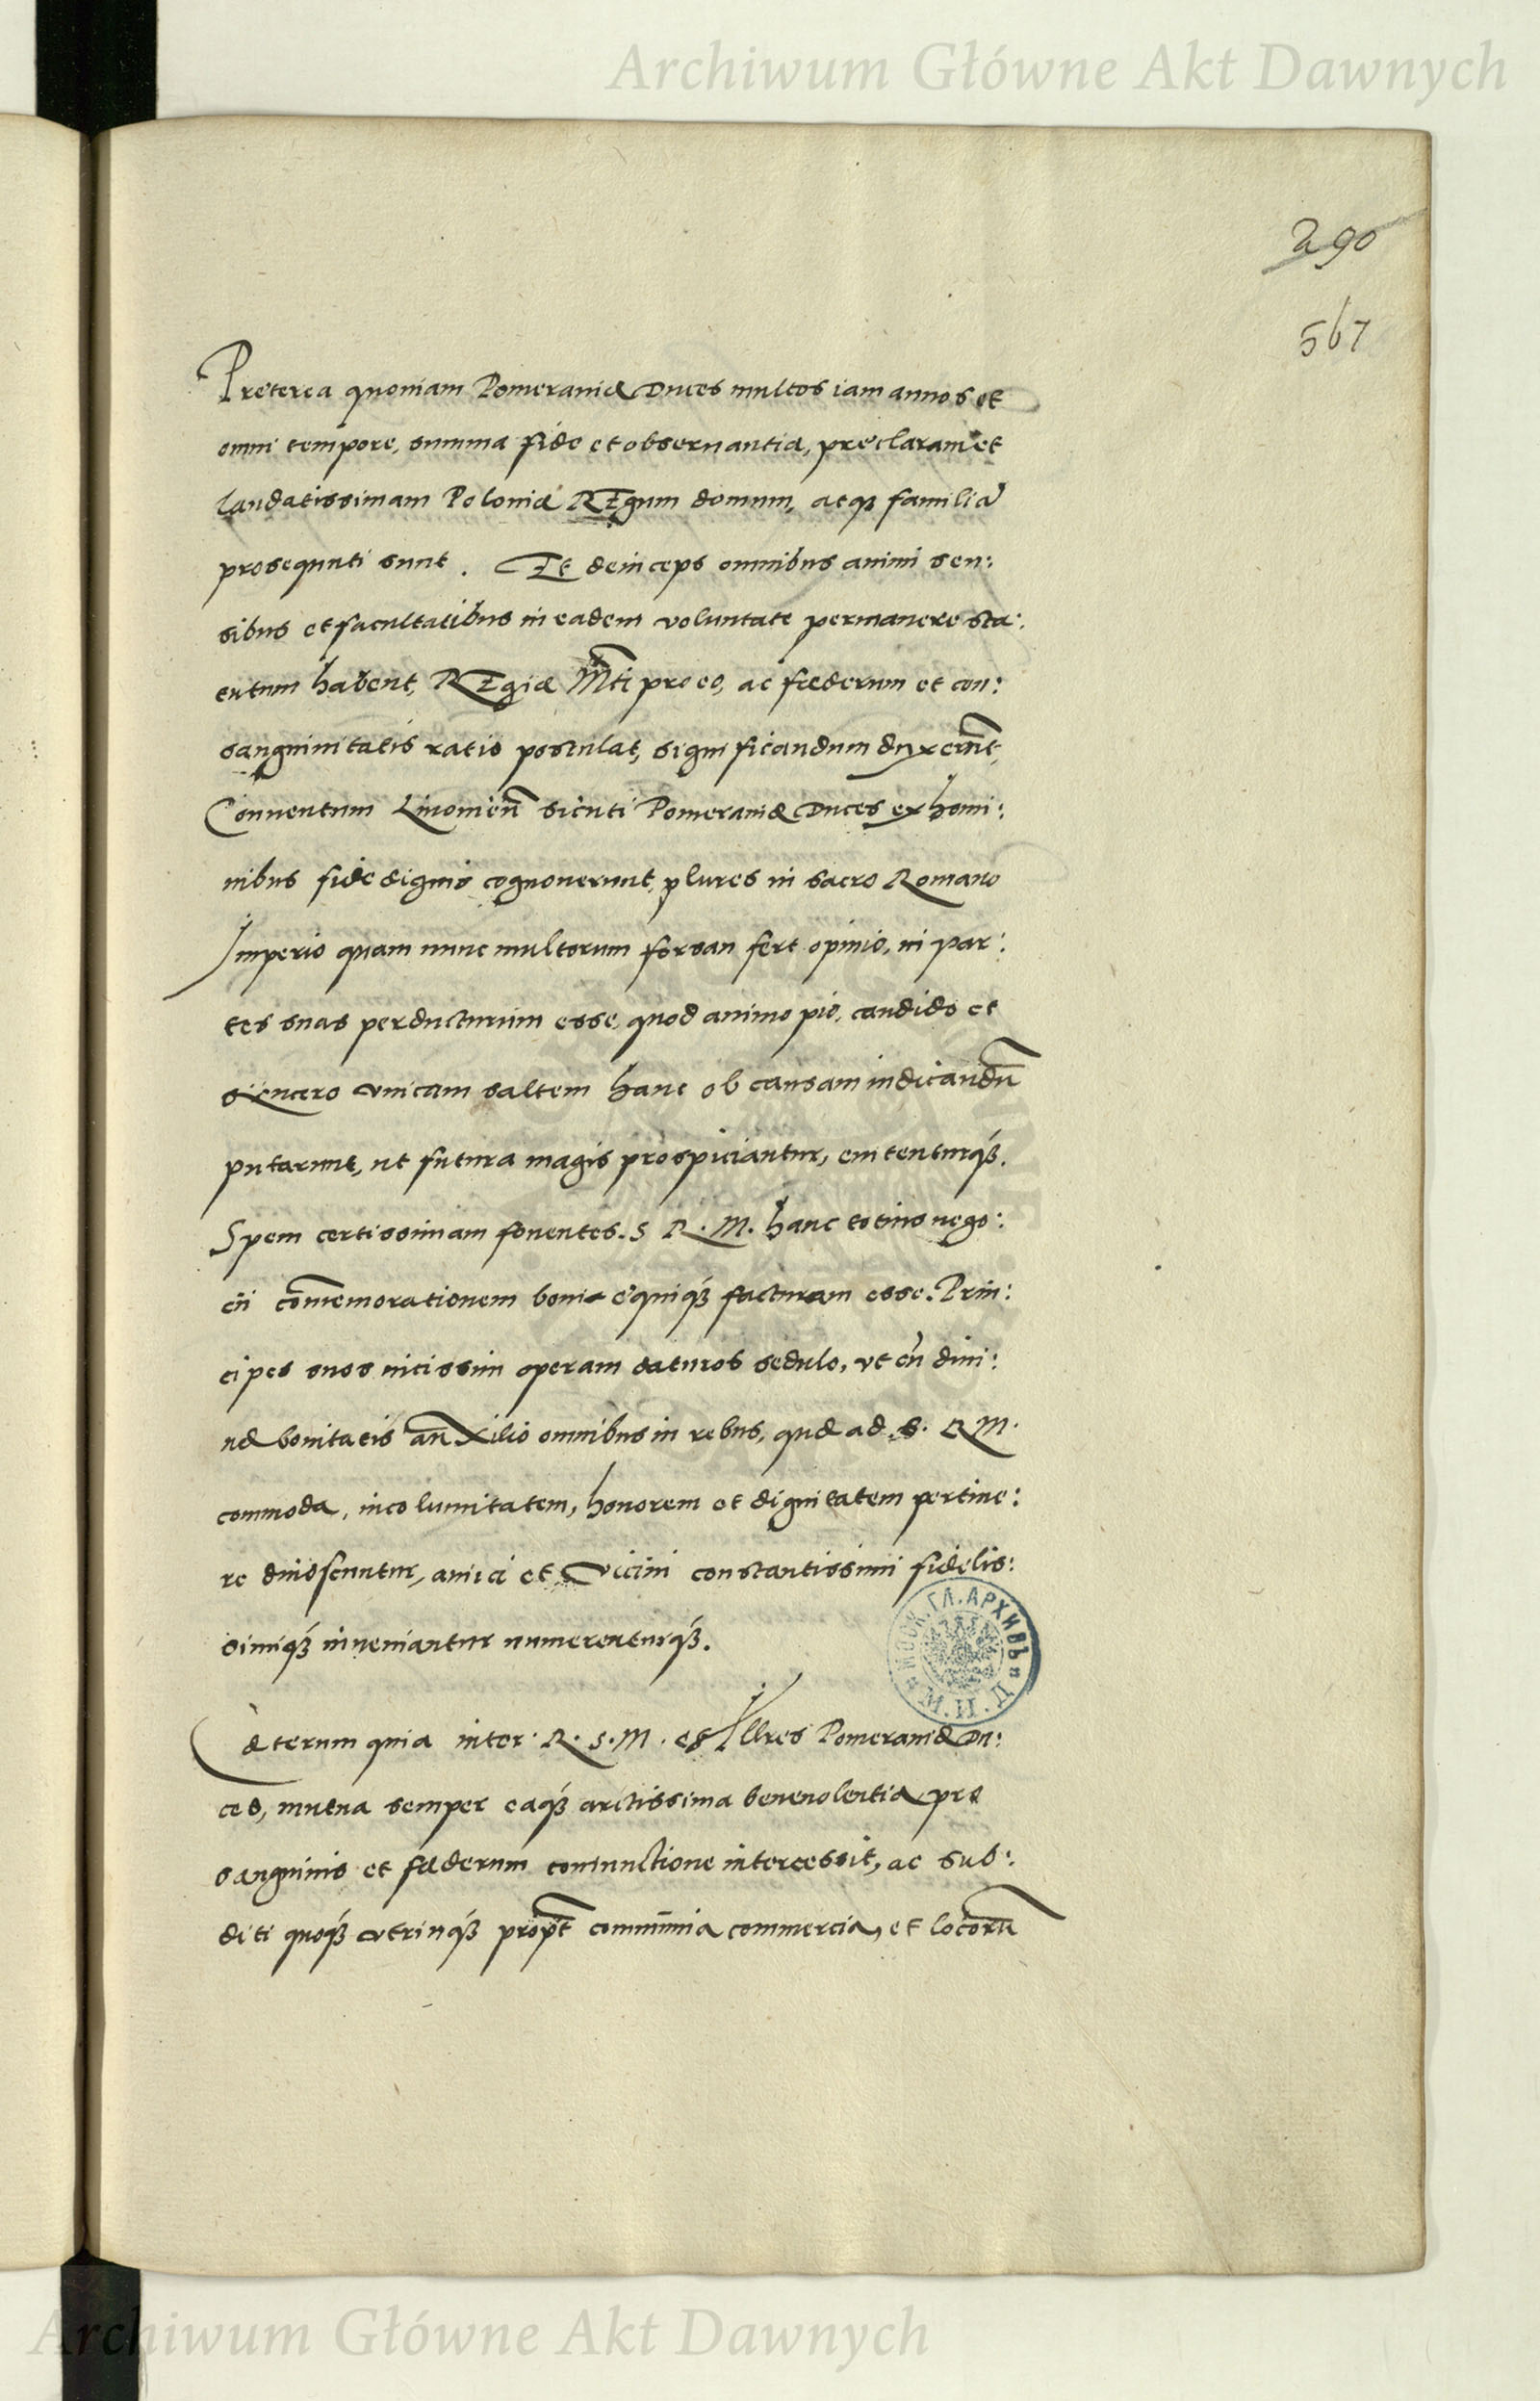 Archiwum Główne Akt Dawnych
290
567
Preterea quoniam Pomeraniæ Duces multos iam annos et
omni tempore, summa fide et obseruantia, preclaram et
laudatissimam Poloniæ REgum domum, atq3 familiā
prosequuti sunt. Et deinceps omnibus animi sen:
sibus et facultatibus in eadem voluntate permanere sta:
tutum habent, REgiæ Mti pro eo, ac fœderum et con:
sanguinitatis ratio postulat, significandum duxerūt,
Conuentum Liuonieñ sicuti Pomeraniæ Duces ex homi:
nibus fide dignis cognouerunt, plures in sacro Romano
Imperio quam nunc multorum forsan fert opinio, in par:
tes suas perducturum esse, quod animo pio, candido et
sincero vnicam saltem hanc ob causam indicandū
putarunt, ut futura magis prospiciantur, euitenturq3.
Spem certissimam fouentes. S R. M. hanc totius nego:
cii cōmemorationem boni equiq3 facturam esse. Prin:
cipes suos uicissim operam daturos sedulo, vt cū diui:
næ bonitatis auxilio omnibus in rebus, quæ ad S. R M.
commoda, incolumitatem, honorem et dignitatem pertine:
re dinoscuntur, amici et Vicini constantissimi fidelis:
simiq3 inueniantur numerenturq3.
Cæterum quia inter R. S. M. et Illres Pomeraniæ Du:
ces, mutua semper eaq3 arctissima beneuolentia pre
sanguinis et fæderum coniunctione intercessit, ac sub:
diti quoq3 vtrinq3 propt commūnia commercia, et locorū
МОСК. ГЛ. АРХИВЪ
М. И. Д.
Archiwum Główne Akt Dawnych